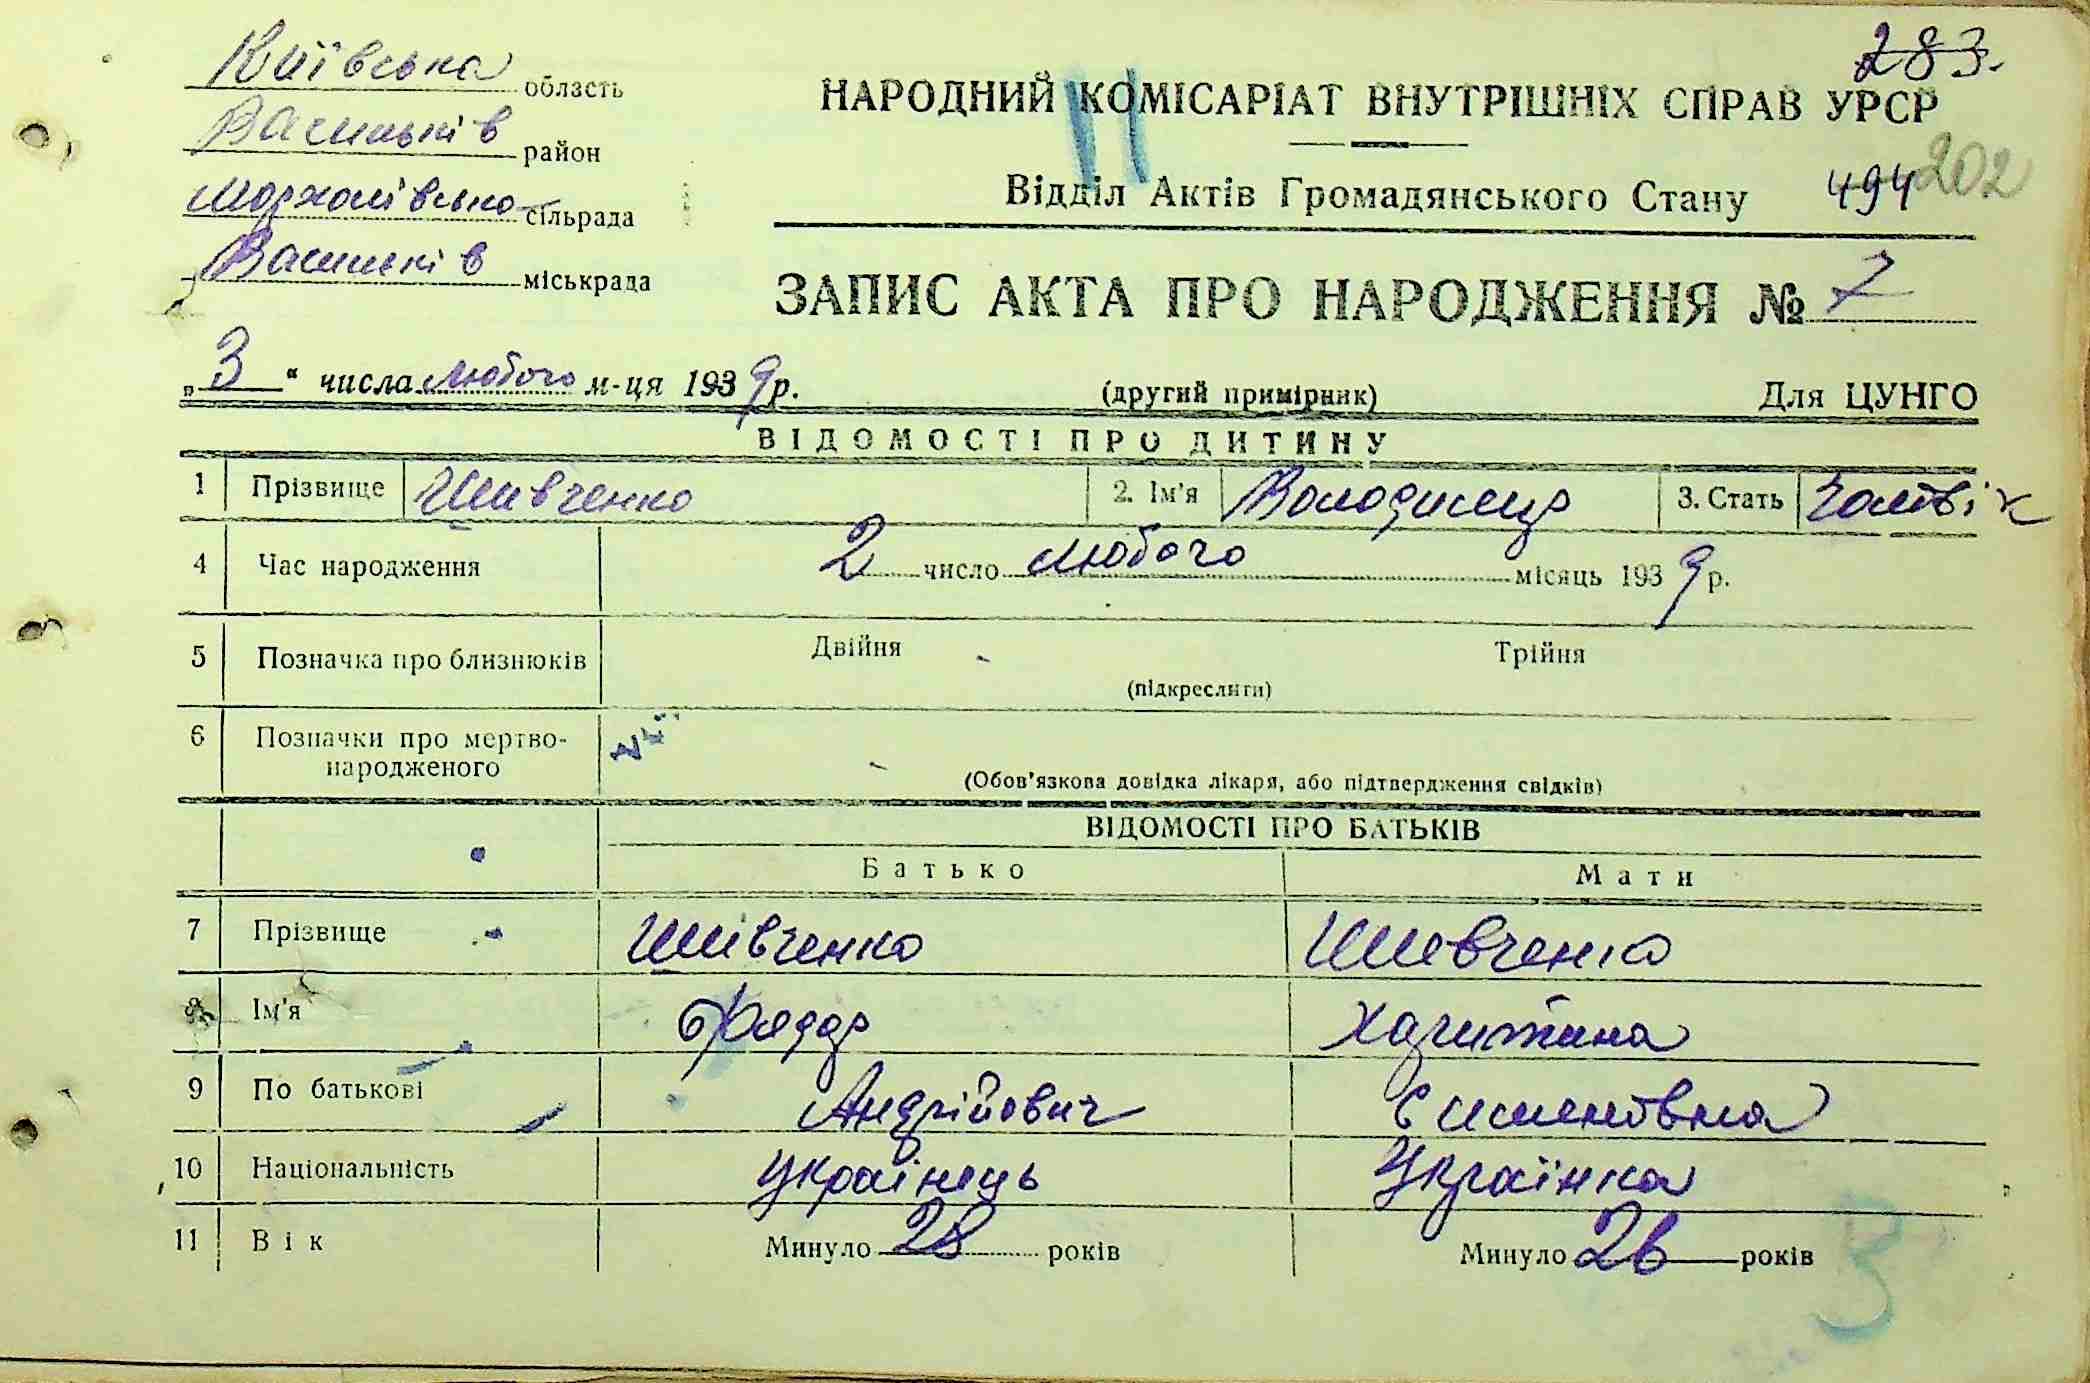 283.
Київська область
НАРОДНИЙ КОМІСАРІАТ ВНУТРІШНІХ СПРАВ УРСР
Васильків район
Відділ Актів Громадянського Стану 494 202
сільрада
Васильків міськрада
ЗАПИС АКТА ПРО НАРОДЖЕННЯ № 7
„3“ числа лютого м-ця 1939 р. (другий примірник) Для ЦУНГО
ВІДОМОСТІ ПРО ДИТИНУ
1 Прізвище Шевченко 2. Ім'я Володимир 3. Стать
4 Час народження 2 число лютого місяць 1939 р.
5 Позначка про близнюків Двійня Трійня
(підкреслити)
6 Позначки про мертво-
народженого
(Обов'язкова довідка лікаря, або підтвердження свідків)
ВІДОМОСТІ ПРО БАТЬКІВ
Батько Мати
7 Прізвище Шевченко Шевченко
8 Ім'я
9 По батькові Андрійович
10 Національність Українець Українка
11 Вік Минуло 28 років Минуло 26 років